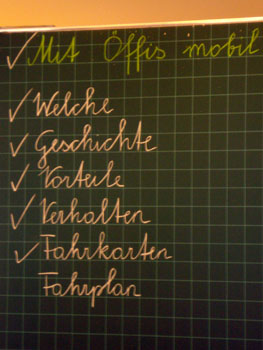 ✓ Mit Öffis mobil
✓ Welche
✓ Geschichte
✓ Vorteile
✓ Verhalten
✓ Fahrkarten
Fahrplan